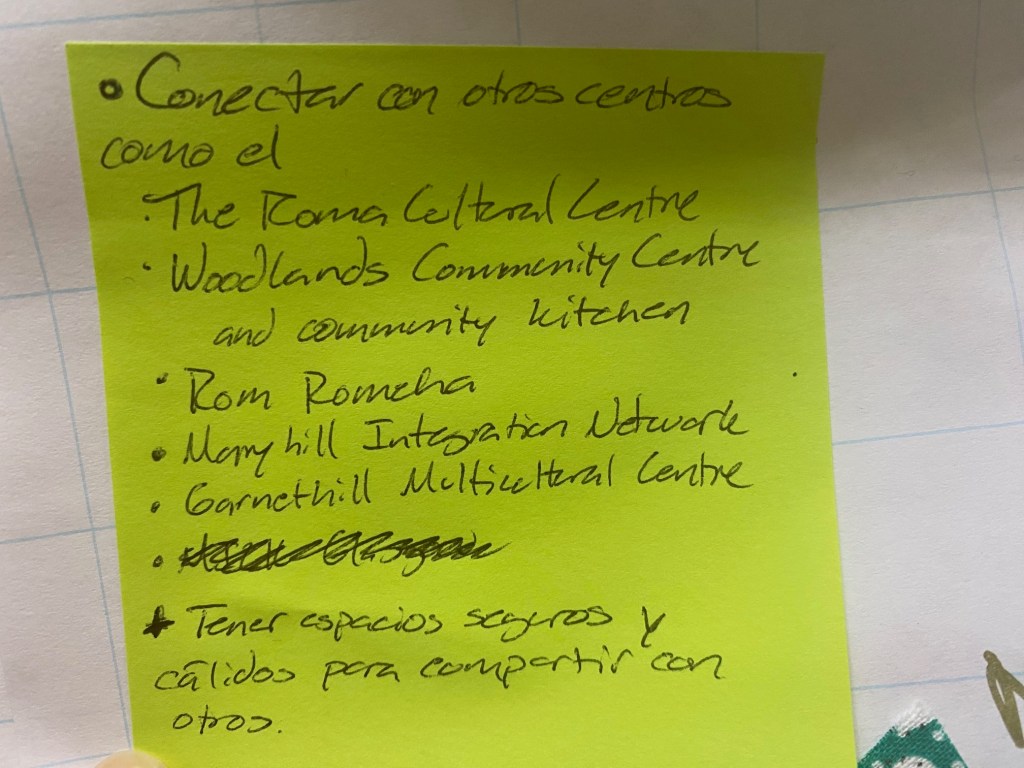 • Conectar con otros centros
como el
· The Roma Cultural Centre
· Woodlands Community Centre
and community kitchen
· Rom Romeha
• Maryhill Integration Network
• Garnethill Multicultural Centre
•
* Tener espacios seguros y
cálidos para compartir con
otros.